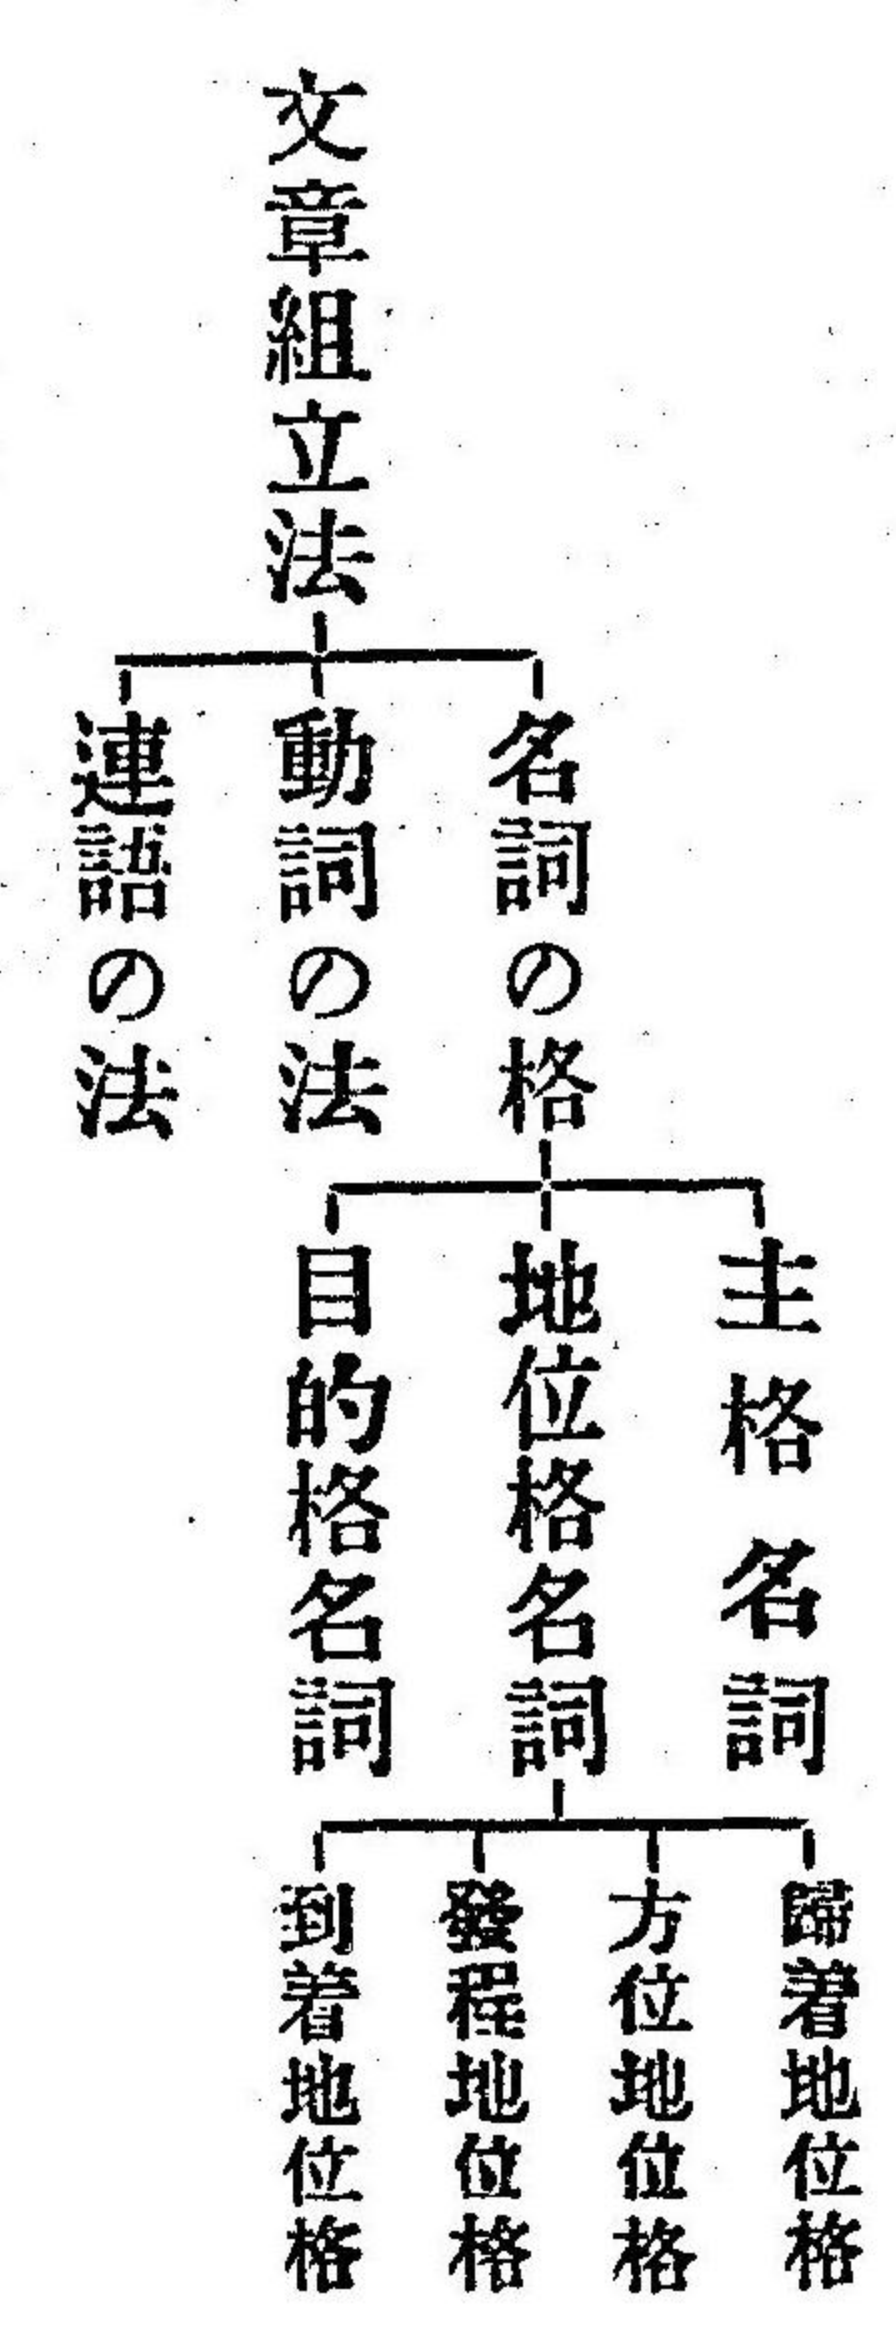 文章組立法
名詞の格
動詞の法
連語の法
主格名詞
地位格名詞
目的格名詞
歸着地位格
方位地位格
發程地位格
到着地位格